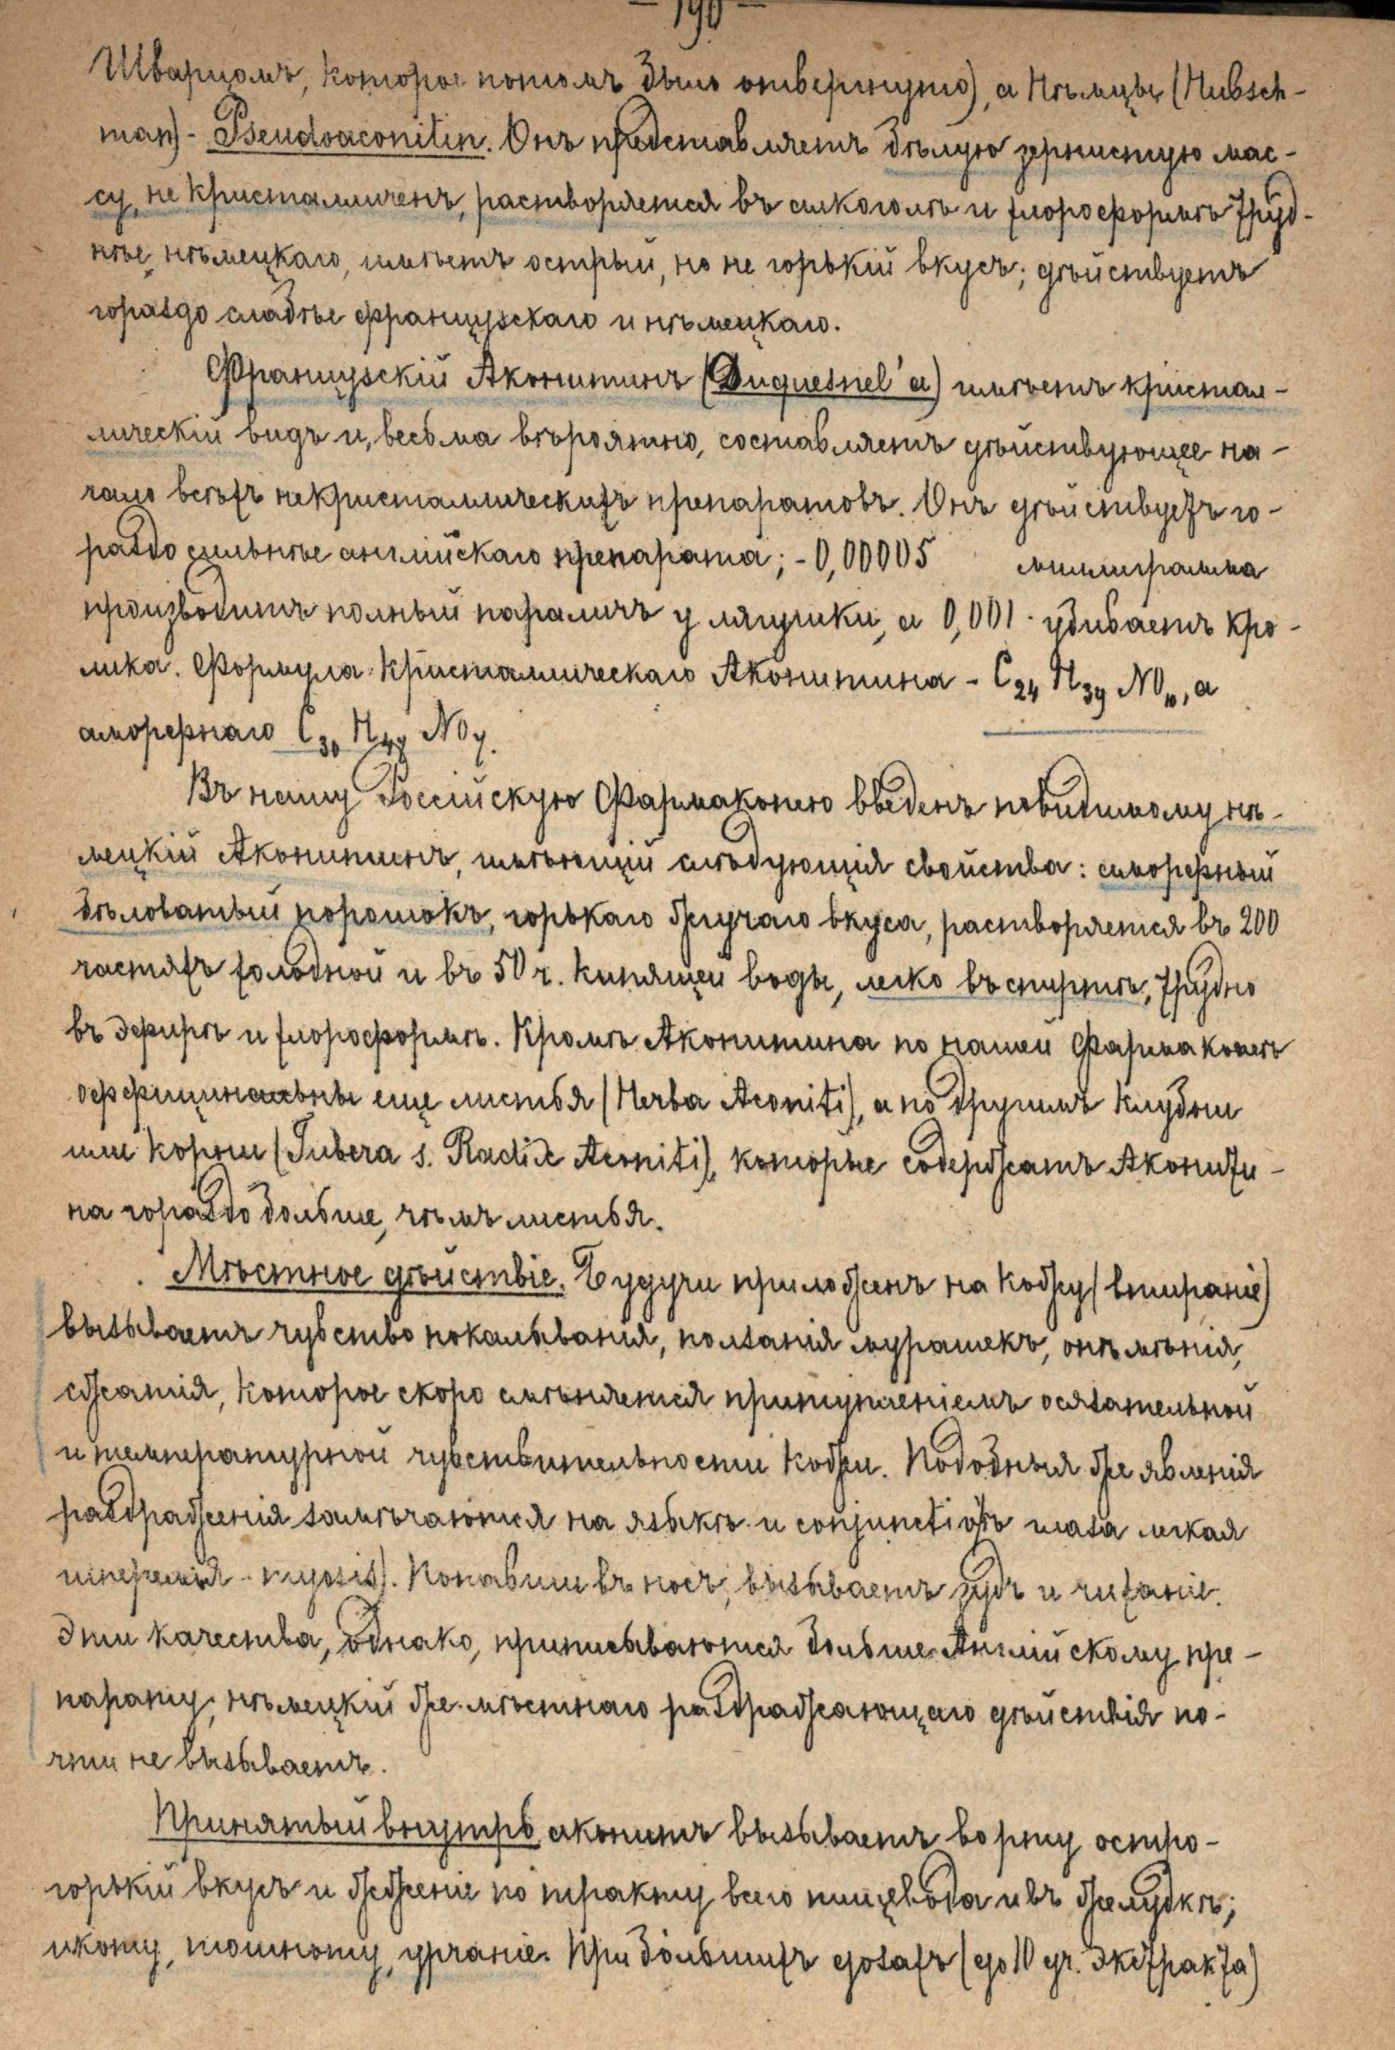 — 190 —
Шварцомъ, которое потомъ было отвергнуто), а Нѣмцы (Hubsch-
man) - Pseudoaconitin. Онъ представляетъ бѣлую зернистую мас-
су, не кристалличенъ, растворяется въ алкоголѣ и хлороформѣ труд-
нѣе нѣмецкаго, имѣетъ острый, но не горькій вкусъ; дѣйствуетъ
гораздо слабѣе французскаго и нѣмецкаго.
Французскій Аконитинъ (Duquesnel'я) имѣетъ кристал-
лическій видъ и, весьма вѣроятно, составляетъ дѣйствующее на-
чало всѣхъ некристаллическихъ препаратовъ. Онъ дѣйствуетъ го-
раздо сильнѣе англійскаго препарата; - 0,00005 миллиграмма
производитъ полный параличъ у лягушки, а 0,001 убиваетъ кро-
лика. Формула кристаллическаго Аконитина - C24 H39 NO10, а
аморфнаго C30 H47 NO7.
Въ нашу Россійскую Фармакопею введенъ повидимому нѣ-
мецкій Аконитинъ, имѣющій слѣдующія свойства: аморфный
бѣловатый порошокъ, горькаго жгучаго вкуса, растворяется въ 200
частяхъ холодной и въ 50 ч. кипящей воды, легко въ спиртѣ, трудно
въ эфирѣ и хлороформѣ. Кромѣ Аконитина по нашей Фармакопеѣ
оффицинальны еще листья (Herba Aconiti), а по другимъ клубни
или корни (Tubera s. Radix Aconiti), которые содержатъ Аконити-
на гораздо больше, чѣмъ листья.
Мѣстное дѣйствіе. Будучи приложенъ на кожу (втираніе)
вызываетъ чувство покалыванія, ползанія мурашекъ, онѣмѣнія,
сжатія, которое скоро смѣняется притупленіемъ осязательной
и температурной чувствительности кожи. Подобныя же явленія
раздраженія замѣчаются на языкѣ и conjunctiv'ѣ глаза легкая
гиперемія - myosis). Попавши въ носъ, вызываетъ зудъ и чиханіе.
Эти качества, однако, приписываются больше Англійскому пре-
парату, нѣмецкій же мѣстнаго раздражающаго дѣйствія по-
чти не вызываетъ.
Принятый внутрь аконитъ вызываетъ во рту остро-
горькій вкусъ и жженіе по тракту всего пищевода и въ желудкѣ;
икоту, тошноту, урчаніе. При бо́льшихъ дозахъ (до 10 gr. экстракта)